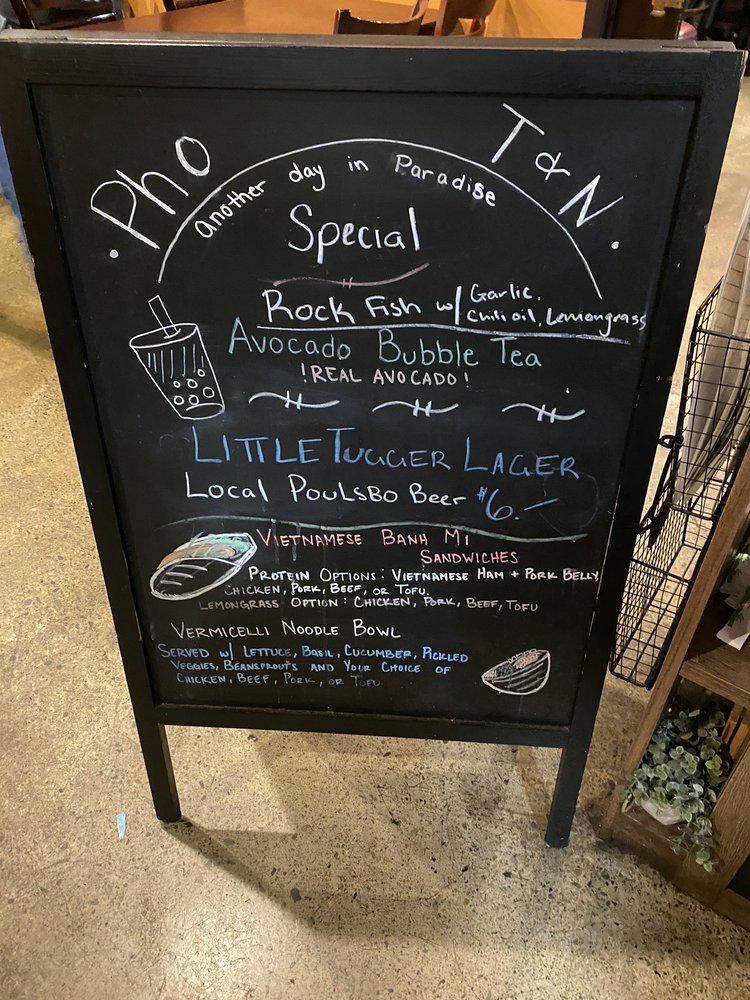 Pho T&N
another day in Paradise
Special
Rock Fish w/ Garlic,
Chili oil, Lemongrass
Avocado Bubble Tea
!REAL AVOCADO!
LITTLE TUGGER LAGER
Local Poulsbo Beer $6.-
VIETNAMESE BANH MI
SANDWICHES
PROTEIN OPTIONS: VIETNAMESE HAM + PORK BELLY,
CHICKEN, PORK, BEEF, OR TOFU.
LEMONGRASS OPTION: CHICKEN, PORK, BEEF, TOFU
VERMICELLI NOODLE BOWL
SERVED W/ LETTUCE, BASIL, CUCUMBER, PICKLED
VEGGIES, BEANSPROUTS AND YOUR CHOICE OF
CHICKEN, BEEF, PORK, OR TOFU